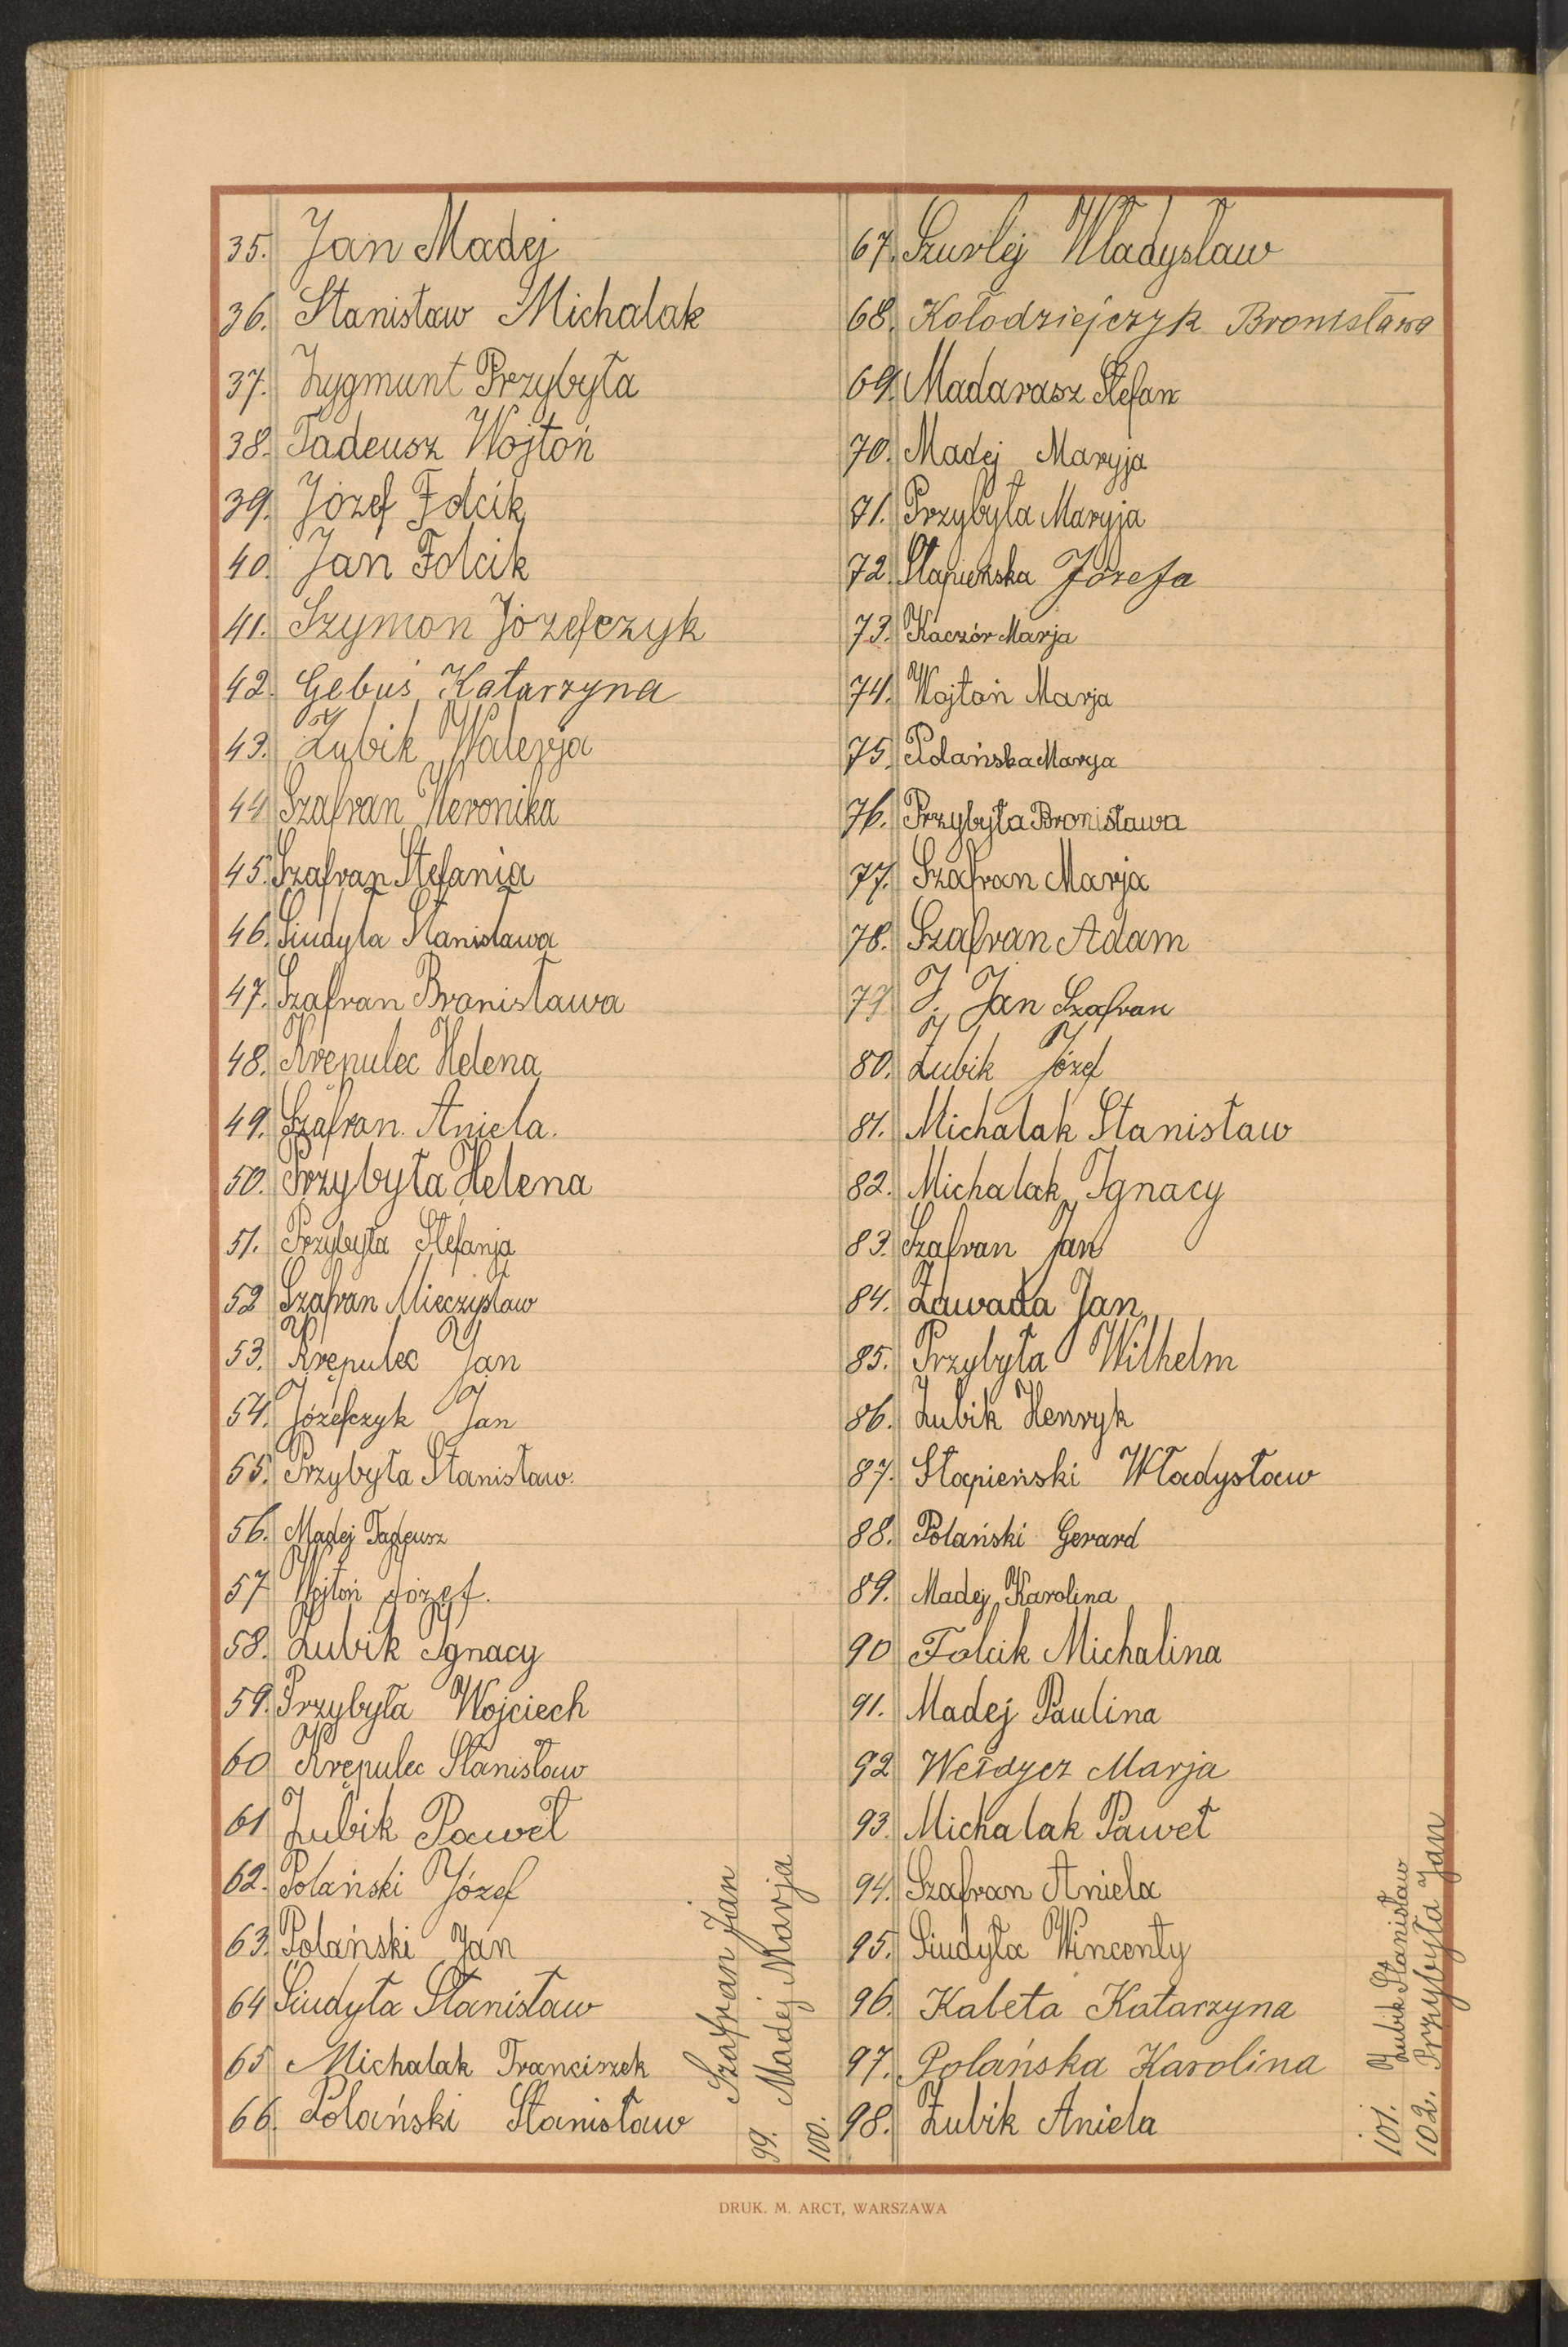 35. Jan Madej
36. Stanisław Michalak
37. Zygmunt Przybyła
38. Tadeusz Wojtoń
39. Józef Folcik
40. Jan Folcik
41. Szymon Józefczyk
42. Gebuś Katarzyna
43. Zubik Walerja
44 Szafran Weronika
45. Szafran Stefania
46. Siudyła Stanisława
47. Szafran Bronisława
48. Krępulec Helena
49. Szafran Aniela.
50. Przybyła Helena
51. Przybyła Stefanja
52 Szafran Mieczysław
53. Krępulec Jan
54. Józefczyk Jan
55. Przybyła Stanisław.
56. Madej Tadeusz
57 Wojtoń Józef.
58. Zubik Ignacy
59. Przybyła Wojciech
60 Krępulec Stanisław
61 Zubik Paweł
62. Polański Józef
63. Polański Jan
64 Siudyła Stanisław
65 Michalak Franciszek
66. Polański Stanisław
99. Szafran Jan
100. Madej Marja
67. Szurlej Władysław
68. Kołodziejczyk Bronisława
69. Madarasz Stefan
70. Madej Maryja
71. Przybyła Maryja
72. Stapieńska Józefa
73. Kaczór Marja
74. Wojtoń Marja
75. Polańska Marya
76. Przybyła Bronisława
77. Szafran Marja
78. Szafran Adam
79 J. Jan Szafran
80. Zubik Józef
81. Michalak Stanisław
82. Michalak Ignacy
83. Szafran Jan
84. Zawada Jan
85. Przybyła Wilhelm
86. Zubik Henryk
87. Stapieński Władysław
88. Polański Gerard
89. Madej Karolina
90 Folcik Michalina
91. Madej Paulina
92 Marja
93. Michalak Paweł
94. Szafran Aniela
95. Siudyła Wincenty
96. Kaleta Katarzyna
97. Polańska Karolina
98. Zubik Aniela
101. Zubik Stanisław
102. Przybyła Jan
DRUK. M. ARCT, WARSZAWA